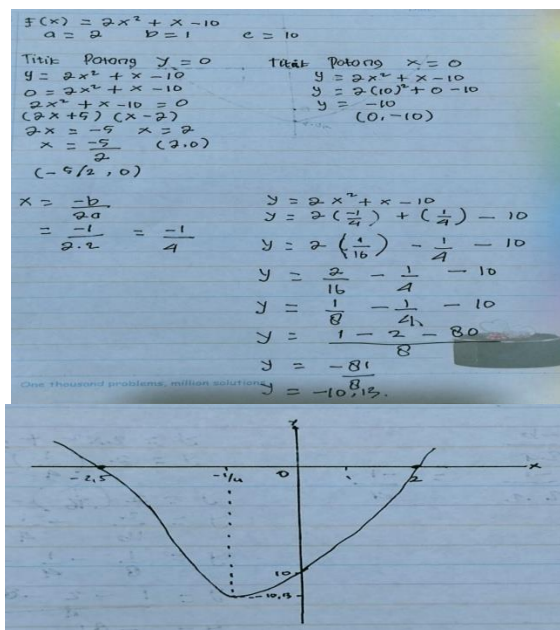 f(x) = 2x² + x - 10
a = 2 b = 1 c = 10
Titik Potong y = 0
y = 2x² + x - 10
0 = 2x² + x - 10
2x² + x - 10 = 0
(2x+5) (x-2)
2x = -5 x = 2
x = -5/2 (2,0)
(-5/2, 0)
Titik Potong x = 0
y = 2x² + x - 10
y = 2(10)² + 0 - 10
y = -10
(0, -10)
x = -b/2a
= -1/2.2 = -1/4
y = 2x² + x - 10
y = 2(-1/4) + (1/4) - 10
y = 2(1/16) - 1/4 - 10
y = 2/16 - 1/4 - 10
y = 1/8 - 1/4 - 10
y = 1 - 2 - 80/8
y = -81/8
y = -10,13.
One thousand problems, million solutions
y
-2,5 -1/4 0 2 x
10
-10,13